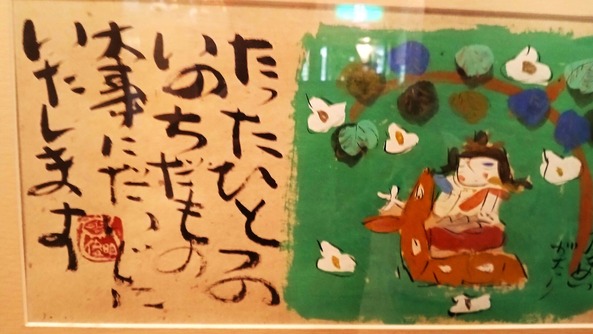 たったひとつの
いのちだもの
大事にだいじに
いたします